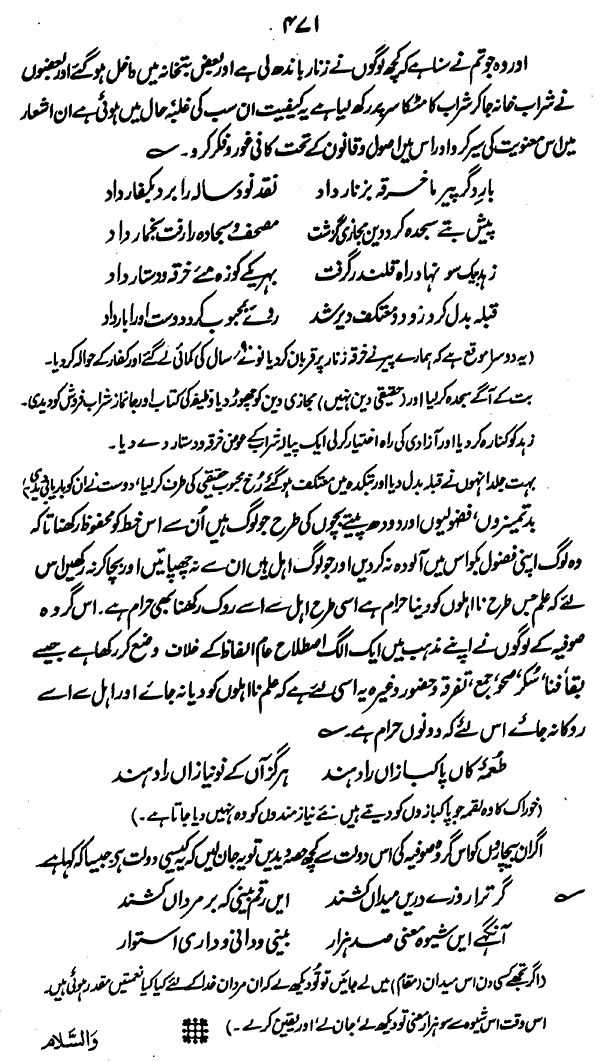 ۴۷۱
اور وہ جو تم نے سنا ہے کہ کچھ لوگوں نے زنار باندھ لی ہے اور بعض بتخانہ میں داخل ہو گئے اور بعضوں
نے شراب خانہ جا کر شراب کا مٹکا سر پر رکھ لیا ہے یہ کیفیت ان سب کی غلبۂ حال میں ہوئی ہے ان اشعار
میں اس معنویت کی سیر کرو اور اس میں اصول و قانون کے تحت کافی غور و فکر کرو۔
بار دگر پیر ما خرقہ بزنار داد نقد نود سالہ را برد بکفار داد
پیش بتے سجدہ کرد دین مجازی گزشت مصحف و سجادہ را رفت بخمار داد
زہد بیک سو نہاد راہ قلندر گرفت بہر یکے کوزہ مئے خرقہ و دستار داد
قبلہ بدل کرد زود معتکف دیر شد روئے بمحبوب کرد دوست اورا بار داد
(یہ دوسرا موقع ہے کہ ہمارے پیر نے خرقہ زنار پر قربان کر دیا نوے سال کی کمائی لے گئے اور کفار کے حوالہ کر دیا۔
بت کے آگے سجدہ کر لیا اور (حقیقی دین نہیں) مجازی دین کو چھوڑ دیا وظیفہ کی کتاب اور جانماز شراب فروش کو دیدی۔
زہد کو کنارہ کر دیا اور آزادی کی راہ اختیار کر لی ایک پیالہ شراب کے عوض خرقہ و دستار دے دیا۔
بہت جلد انہوں نے قبلہ بدل دیا اور بتکدہ میں معتکف ہو گئے رُخ محبوب حقیقی کی طرف کر لیا، دوست نے ان کو باریابی دیدی)
بدتمیزوں، فضولیوں اور دودھ پیتے بچوں کی طرح جو لوگ ہیں اُن سے اس خط کو محفوظ رکھنا تاکہ
وہ لوگ اپنی فضول کو اس میں آلودہ نہ کریں اور جو لوگ اہل ہیں ان سے نہ چھپائیں اور بچا کر نہ رکھیں اس
لئے کہ علم جس طرح نااہلوں کو دینا حرام ہے اسی طرح اہل سے اسے روک رکھنا بھی حرام ہے۔ اس گروہ
صوفیہ کے لوگوں نے اپنے مذہب میں ایک الگ اصطلاح عام الفاظ کے خلاف وضع کر رکھا ہے جیسے
بقا، فنا، سُکر، صحو، جمع، تفرقہ و حضور وغیرہ یہ اسی لئے ہے کہ علم نااہلوں کو دیا نہ جائے اور اہل سے اسے
روکا نہ جائے اس لئے کہ دونوں حرام ہے۔
طعمۂ کاں پاکبازاں را دہند ہرگز آں کے نو نیازاں را دہند
(خوراک کا وہ لقمہ جو پاکبازوں کو دیتے ہیں نئے نیاز مندوں کو وہ نہیں دیا جاتا ہے۔)
اگر ان بیچاروں کو اس گروہ صوفیہ کی اس دولت سے کچھ حصہ دیدیں تو یہ جان لیں کہ یہ کیسی دولت ہے، جیسا کہ کہا ہے
گر ترا روزے دریں میداں کشند ایں رقم بینی کہ بر مرداں کشند
آنگہے ایں شیوہ معنی صد ہزار بینی و دانی و داری استوار
(اگر تجھے کسی دن اس میدان (مقام) میں لے جائیں تو تُو دیکھ لے کہ ان مردان خدا کے لئے کیا کیا نعمتیں مقدر ہوئی ہیں۔
اس وقت اس شیوہ سے سو ہزار معنی تو دیکھ لے، جان لے، اور یقین کر لے۔)
والسّلام